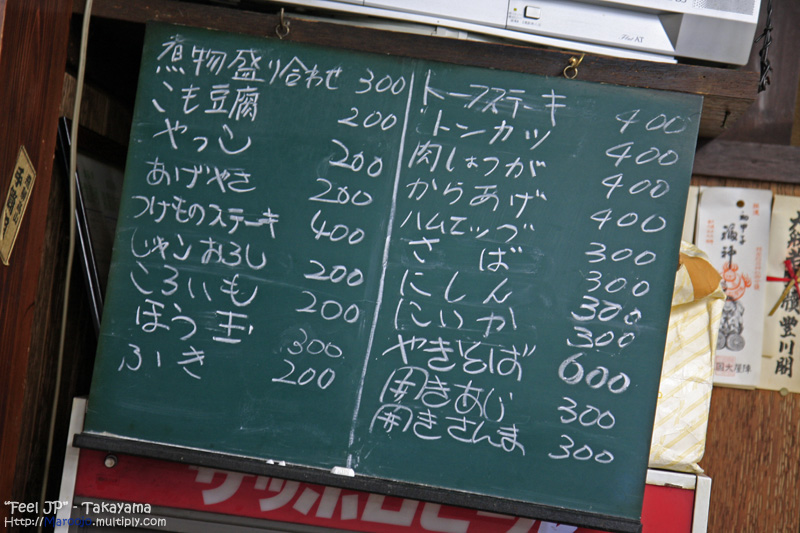 煮物盛り合わせ 300
こも豆腐 200
やっこ 200
あげやき 200
つけものステーキ 400
じゃこおろし 200
ころいも 200
ほう玉 300
ふき 200
トーフステーキ 400
トンカツ 400
肉しょうが 400
からあげ 400
ハムエッグ 300
さば 300
にしん 300
にいか 300
やきそば 600
開きあじ 300
開きさんま 300
サッポロビール
"Feel JP" - Takayama
Http://Marcojp.multiply.com/